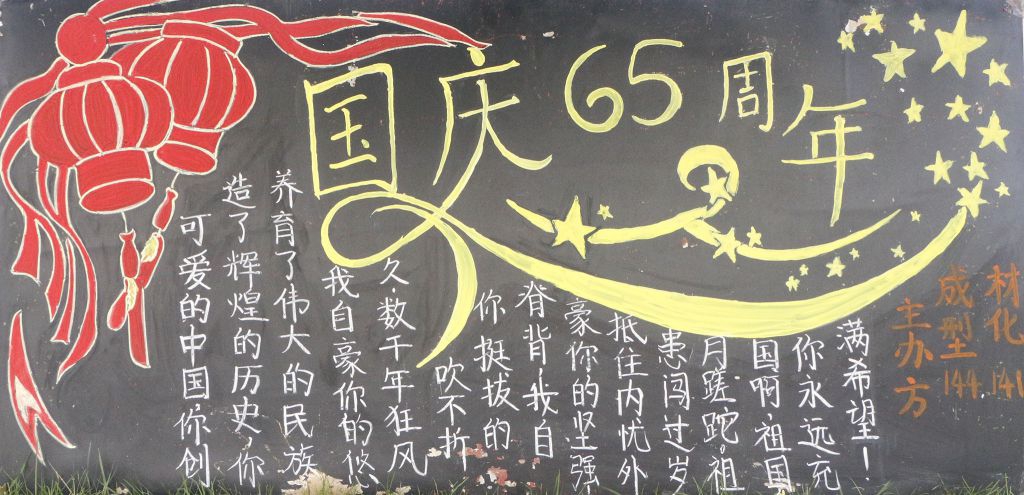 国庆65周年
可爱的中国你创
造了辉煌的历史,你
养育了伟大的民族
我自豪你的悠
久,数千年狂风
吹不折
你挺拔的
脊背,我自
豪你的坚强
抵住内忧外
患闯过岁
月蹉跎,祖
国啊,祖国
你永远充
满希望!
主办方
成型144
材化141